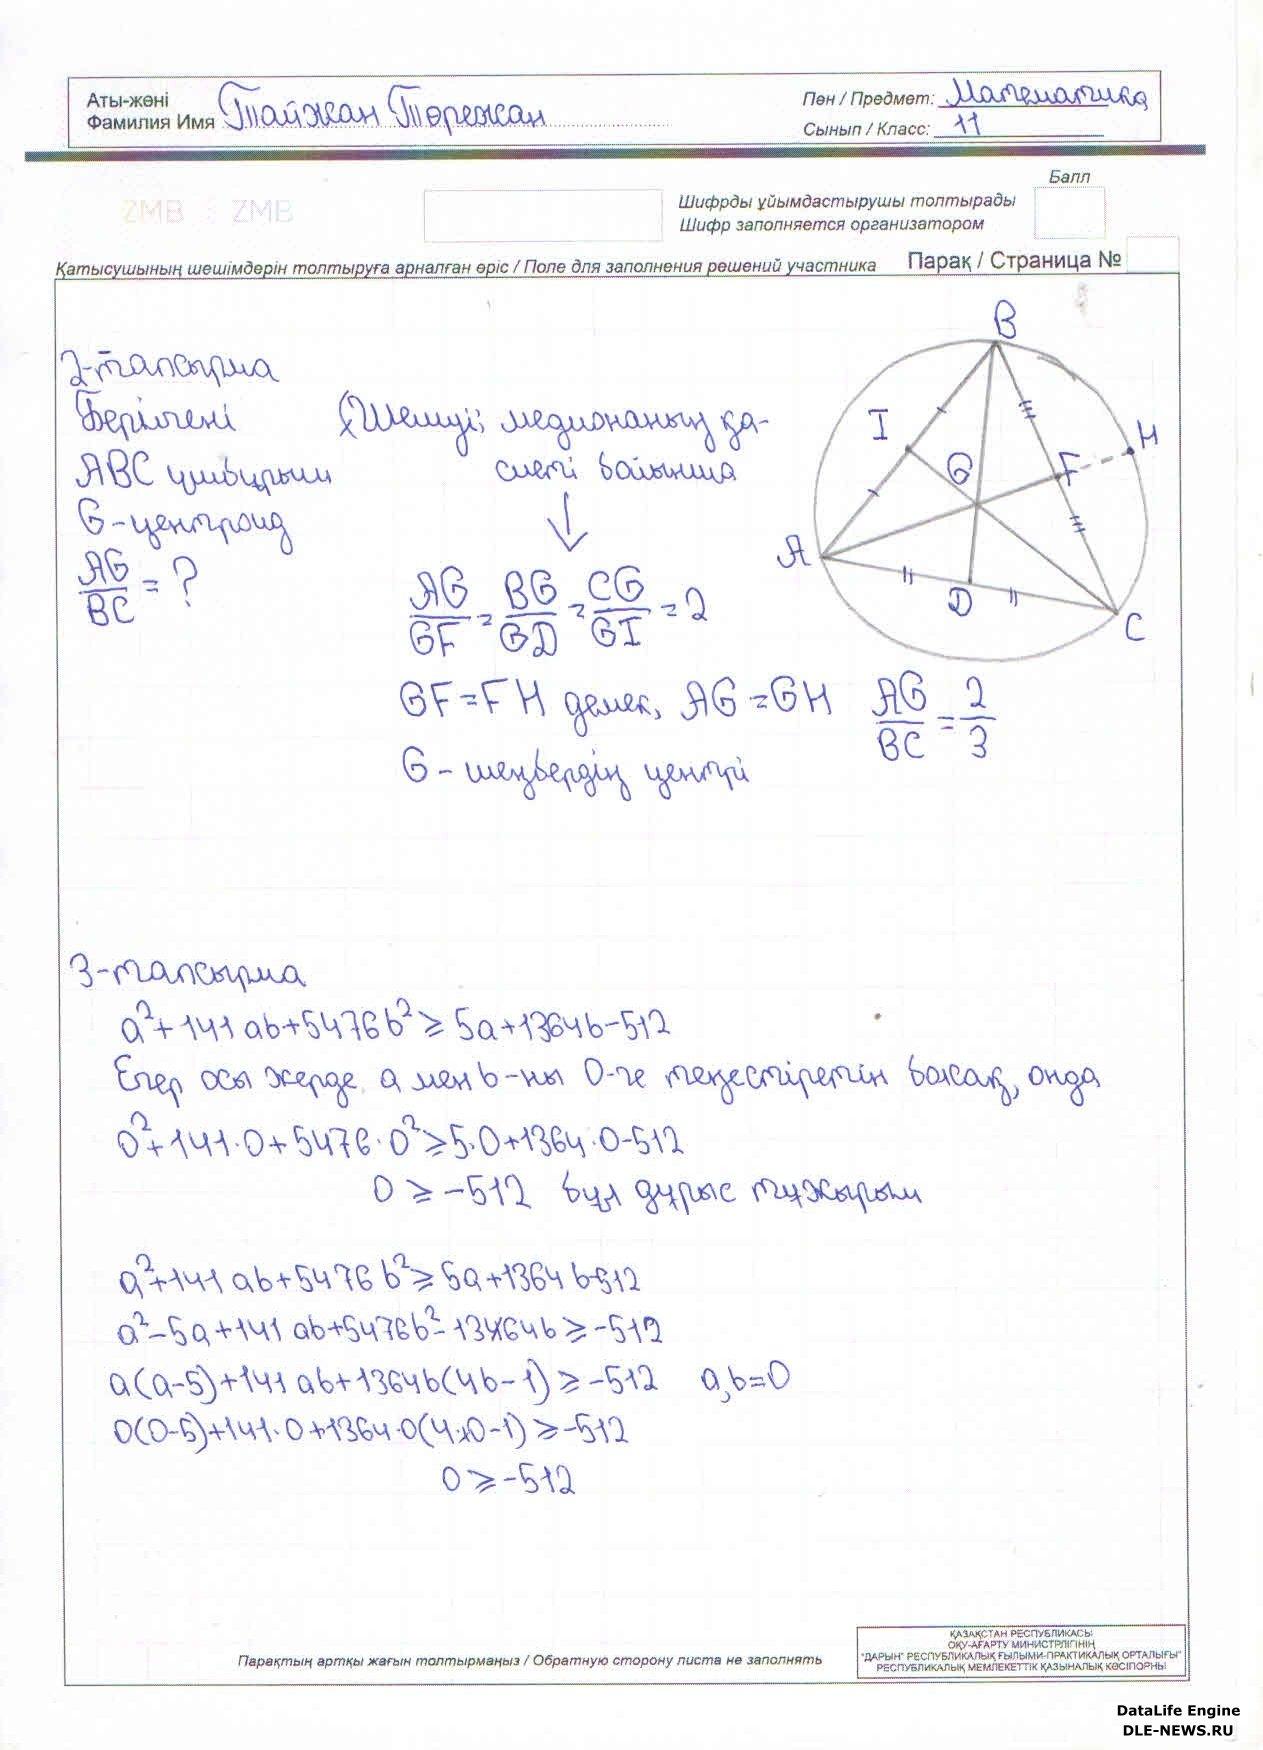 Аты-жөні
Фамилия Имя Тайжан Төрежан
Пән / Предмет: Математика
Сынып / Класс: 11
ZMB ZMB
Балл
Шифрды ұйымдастырушы толтырады
Шифр заполняется организатором
Қатысушының шешімдерін толтыруға арналған өріс / Поле для заполнения решений участника Парақ / Страница №
2-тапсырма
Берілгені
ABC үшбұрыш
G-центроид
AG/BC = ?
Шешуі; медиананың қа-
сиеті бойынша
↓
AG/GF = BG/GD = CG/GI = 2
GF=FH демек, AG=GH AG/BC = 2/3
G - шеңбердің центрі
B
I
G
F
H
A
D
C
3-тапсырма
a²+141ab+5476b²⩾5a+1364b-512
Егер осы жерде a мен b-ны 0-ге теңестіретін болсақ, онда
0²+141·0+5476·0²⩾5·0+1364·0-512
0⩾-512 бұл дұрыс тұжырым
a²+141ab+5476b²⩾5a+1364b-512
a²-5a+141ab+5476b²-1364b⩾-512
a(a-5)+141ab+1364b(4b-1)⩾-512 a,b=0
0(0-5)+141·0+1364·0(4·0-1)⩾-512
0⩾-512
Парақтың артқы жағын толтырмаңыз / Обратную сторону листа не заполнять
ҚАЗАҚСТАН РЕСПУБЛИКАСЫ
ОҚУ-АҒАРТУ МИНИСТРЛІГІНІҢ
"ДАРЫН" РЕСПУБЛИКАЛЫҚ ҒЫЛЫМИ-ПРАКТИКАЛЫҚ ОРТАЛЫҒЫ"
РЕСПУБЛИКАЛЫҚ МЕМЛЕКЕТТІК ҚАЗЫНАЛЫҚ КӘСІПОРНЫ
DataLife Engine
DLE-NEWS.RU